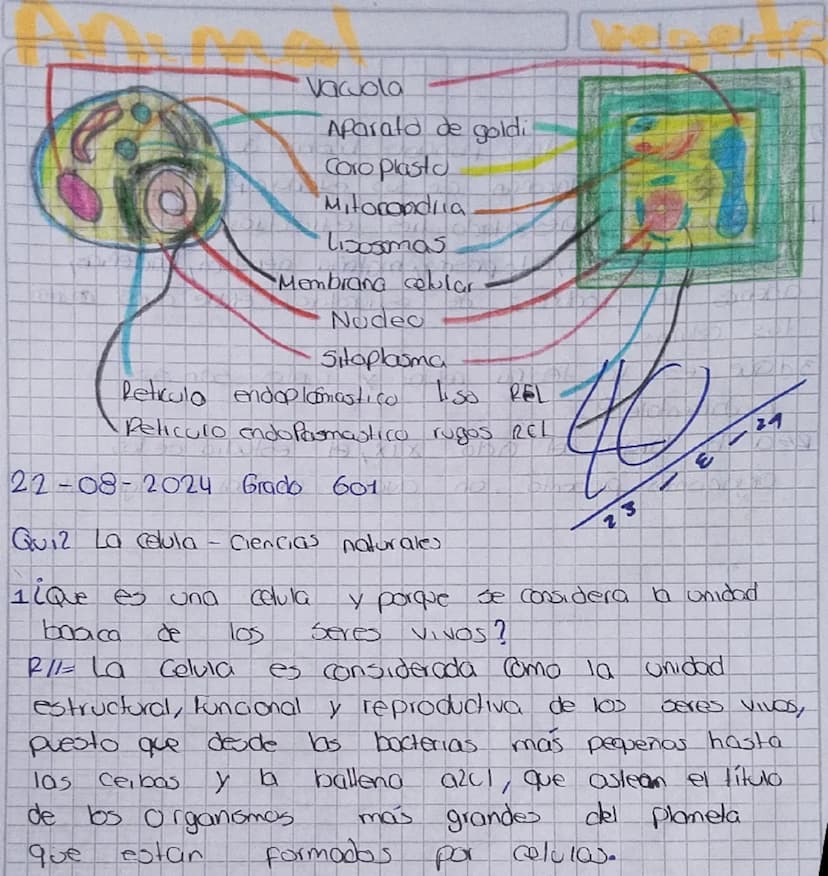 Animal vegeta
Vacuola
Aparato de goldi
Coroplasto
Mitocondria
Lisosmas
Membrana celular
Nucleo
Sitoplasma
Reticulo endoplasmastico liso REL
Reticulo endoplasmastico rugos REL
40
23 - 8 - 24
22-08-2024 Grado 601
Quiz La celula - Ciencias naturales
1¿Que es una celula y porque se considera la unidad
basica de los seres vivos?
R//= La celula es considerada como la unidad
estructural, funcional y reproductiva de los seres vivos,
puesto que desde las bacterias más pequeñas hasta
las ceibas y la ballena azul, que ostean el título
de los organismos más grandes del planeta
que están formados por celulas.